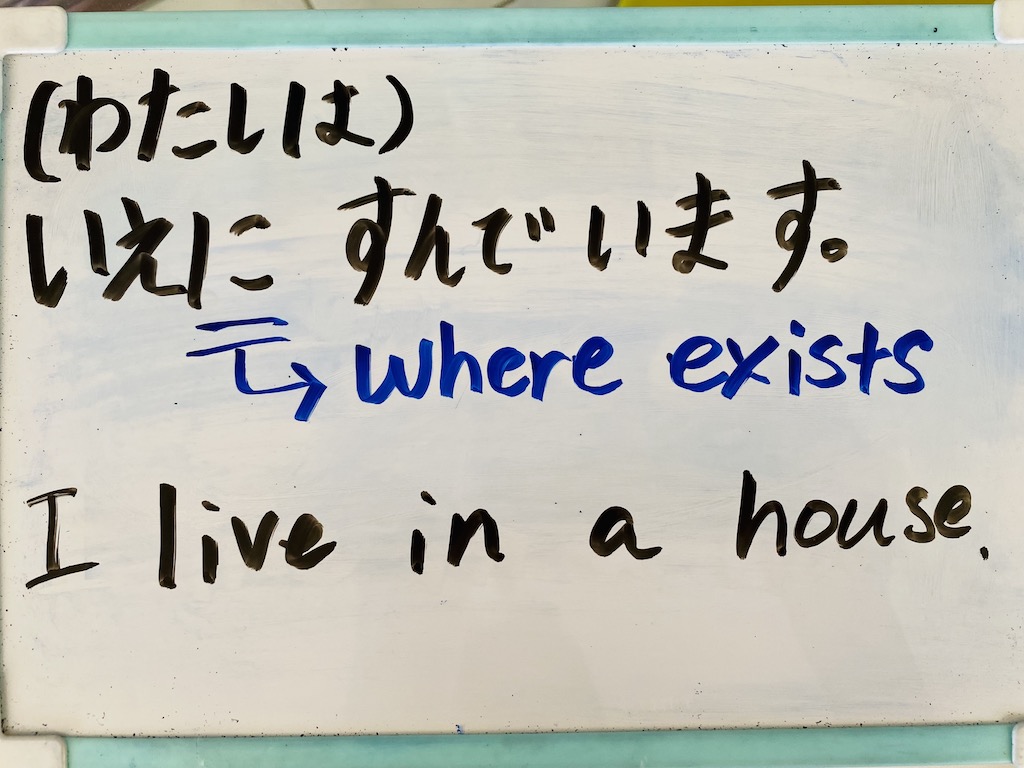 (わたしは)
いえに すんでいます。
↳ where exists
I live in a house.